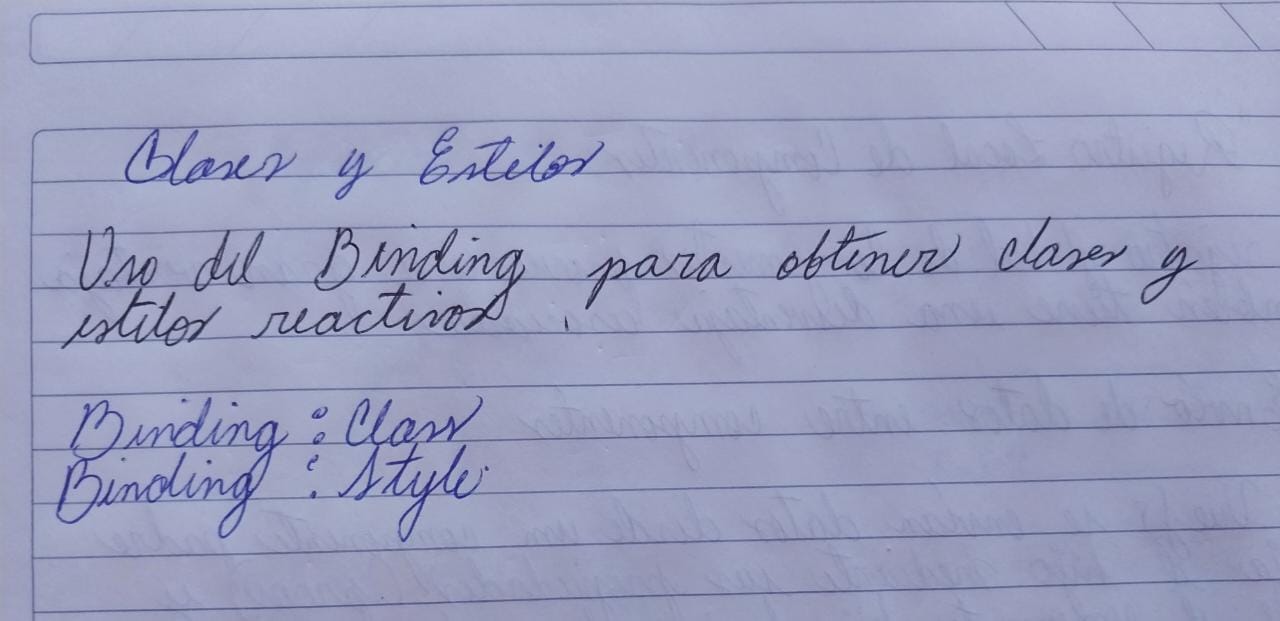 Clases y Estilos
Uso del Binding para obtener clases y
estilos reactivos.
Binding : Class
Binding : Style